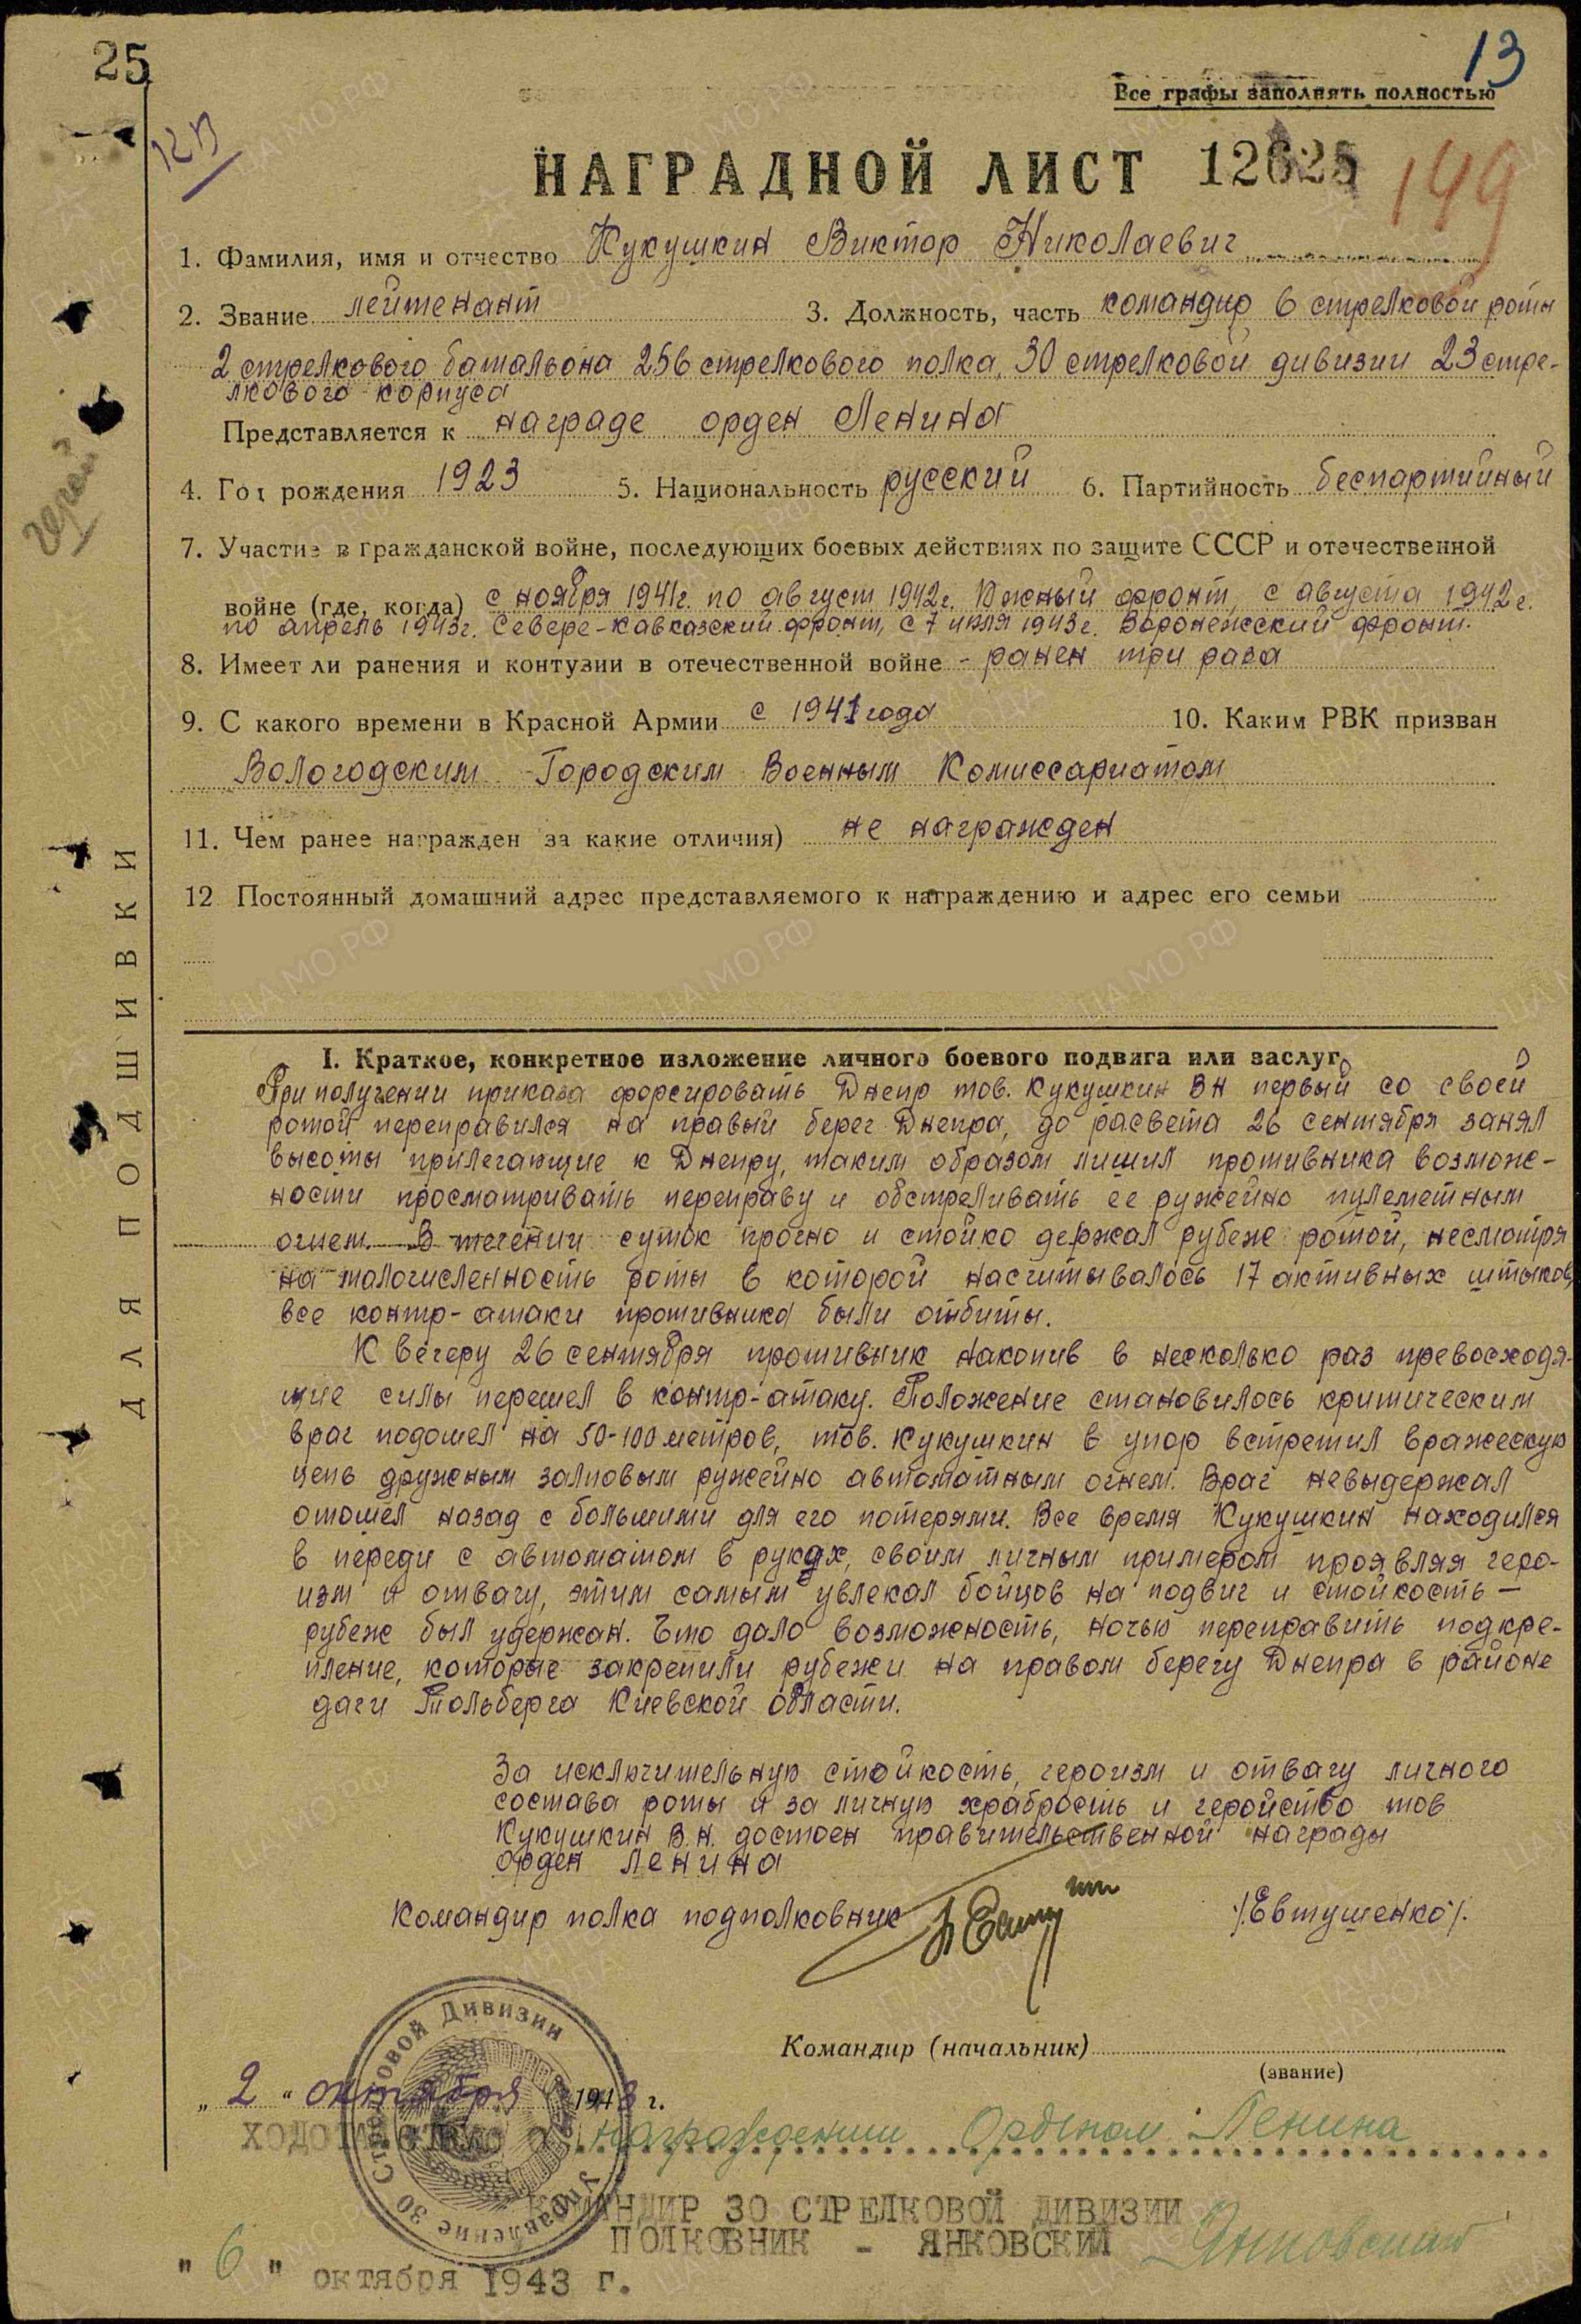 25
13
Все графы заполнять полностью
НАГРАДНОЙ ЛИСТ 12625
149
1. Фамилия, имя и отчество Кукушкин Виктор Николаевич
2. Звание лейтенант 3. Должность, часть командир 6 стрелковой роты
2 стрелкового батальона 256 стрелкового полка, 30 стрелковой дивизии 23 стре-
лкового корпуса
Представляется к награде орден Ленина
герой
4. Год рождения 1923 5. Национальность русский 6. Партийность беспартийный
7. Участие в гражданской войне, последующих боевых действиях по защите СССР и отечественной
войне (где, когда) с ноября 1941г. по август 1942г. Южный фронт, с августа 1942г.
по апрель 1943г. Северо-Кавказский фронт, с 7 июля 1943г. Воронежский фронт.
8. Имеет ли ранения и контузии в отечественной войне - ранен три раза
9. С какого времени в Красной Армии с 1941 года 10. Каким РВК призван
Вологодским Городским Военным Комиссариатом
11. Чем ранее награжден за какие отличия) не награжден
12 Постоянный домашний адрес представляемого к награждению и адрес его семьи
ДЛЯ ПОДШИВКИ
I. Краткое, конкретное изложение личного боевого подвига или заслуг
При получении приказа форсировать Днепр тов. Кукушкин ВН первый со своей
ротой переправился на правый берег Днепра, до расвета 26 сентября занял
высоты прилегающие к Днепру, таким образом лишил противника возмож-
ности просматривать переправу и обстреливать ее ружейно пулеметным
огнем. В течении суток прочно и стойко держал рубеж ротой, несмотря
на малочисленность роты в которой насчитывалось 17 активных штыков,
все контр-атаки противника были отбиты.
К вечеру 26 сентября противник накопив в несколько раз превосходя-
щие силы перешел в контр-атаку. Положение становилось критическим
враг подошел на 50-100 метров, тов. Кукушкин в упор встретил вражескую
цепь дружным залповым ружейно автоматным огнем. Враг невыдержал
отошел назад с большими для его потерями. Все время Кукушкин находился
в переди с автоматом в руках, своим личным примером проявляя геро-
изм и отвагу, этим самым увлекал бойцов на подвиг и стойкость —
рубеж был удержан. Это дало возможность, ночью переправить подкре-
пление, которые закрепили рубежи на правом берегу Днепра в районе
дачи Тольберга Киевской области.
За исключительную стойкость, героизм и отвагу личного
состава роты и за личную храбрость и геройство тов
Кукушкин В.Н. достоен правительственной награды
орден Ленина
Командир полка подполковник /Евтушенко/.
Командир (начальник)
(звание)
„ 2 “ октября 1943 г.
Управление 30 Стрелковой Дивизии
ХОДОТАЙСТВУЮ о награждении Орденом Ленина
КОМАНДИР 30 СТРЕЛКОВОЙ ДИВИЗИИ
ПОЛКОВНИК - ЯНКОВСКИЙ Янковский
" 6 " октября 1943 г.
ПАМЯТЬ НАРОДА
ЦАМО.РФ